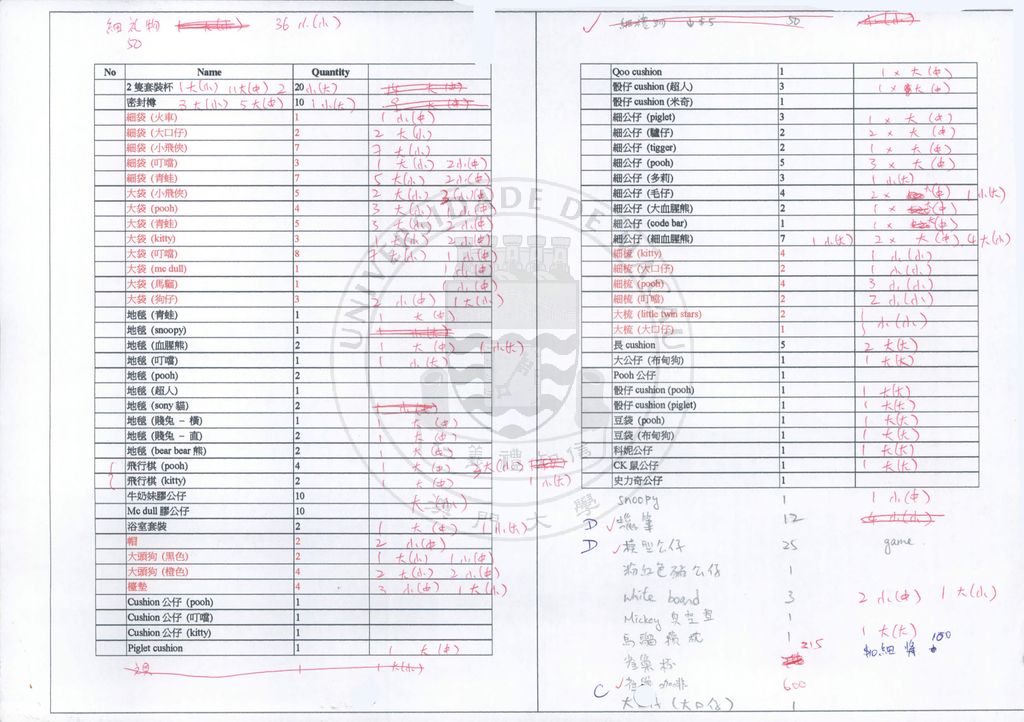 細禮物 36 小(小)
50
No Name Quantity
2 隻套裝杯 1大(小) 11大(中) 2 20 小(大)
密封樽 3大(小) 5大(中) 10 1小(大)
細袋 (火車) 1 1 小(中)
細袋 (大口仔) 2 2 大(小)
細袋 (小飛俠) 7 7 大(小)
細袋 (叮噹) 3 1 大(小) 2小(中)
細袋 (青蛙) 7 5 大(小) 2小(中)
大袋 (小飛俠) 5 2 大(小) 3小(中)
大袋 (pooh) 4 3 大(小) 1小(中)
大袋 (青蛙) 5 3 大(小) 2小(中)
大袋 (kitty) 3 1 大(小) 2小(中)
大袋 (叮噹) 8 7 大(小) 1小(中)
大袋 (mc dull) 1 1小(中)
大袋 (馬騮) 1 1小(中)
大袋 (狗仔) 3 2 小(中) 1大(小)
地毯 (青蛙) 1 1 大(中)
地毯 (snoopy) 1
地毯 (血腥熊) 2 1 大(中) 1小(大)
地毯 (叮噹) 1 1 小(大)
地毯 (pooh) 2
地毯 (超人) 1
地毯 (sony 貓) 2
地毯 (賤兔 – 橫) 1 1 大(中)
地毯 (賤兔 – 直) 2 1 大(中)
地毯 (bear bear 熊) 2 1 大(中)
飛行棋 (pooh) 4 1 大(中) 3大(小)
飛行棋 (kitty) 2 1 大(中) 1小(大)
牛奶妹膠公仔 10 大(小)
Mc dull 膠公仔 10
浴室套裝 2 1 大(中) 1小(大)
帽 2 2 小(中)
大頭狗 (黑色) 2 1 大(小) 1小(中)
大頭狗 (橙色) 4 2 大(小) 2小(中)
檯墊 4 3 小(中) 1大(小)
Cushion 公仔 (pooh) 1
Cushion 公仔 (叮噹) 1
Cushion 公仔 (kitty) 1
Piglet cushion 1 1 大(中)
1 1 大(小)
細禮物 50
Qoo cushion 1 1 × 大(中)
骰仔 cushion (超人) 3 1 × 大(中)
骰仔 cushion (米奇) 1
細公仔 (piglet) 3 1 × 大(中)
細公仔 (驢仔) 2 2 × 大(中)
細公仔 (tigger) 2 1 × 大(中)
細公仔 (pooh) 5 3 × 大(中)
細公仔 (多莉) 3 1 小(大)
細公仔 (毛仔) 4 2 × 大(中) 1小(大)
細公仔 (大血腥熊) 2 1 × 大(中)
細公仔 (code bar) 1 1 × 大(中)
細公仔 (細血腥熊) 7 1小(大) 2 × 大(中) 4大(小)
細梳 (kitty) 4 1 小(小)
細梳 (大口仔) 2 1 小(小)
細梳 (pooh) 4 3 小(小)
細梳 (叮噹) 2 2 小(小)
大梳 (little twin stars) 2 小(小)
大梳 (大口仔) 1
長 cushion 5 2 大(大)
大公仔 (布甸狗) 1 1 大(大)
Pooh 公仔 1
骰仔 cushion (pooh) 1 1 大(大)
骰仔 cushion (piglet) 1 1 大(大)
豆袋 (pooh) 1 1 大(大)
豆袋 (布甸狗) 1 1 大(大)
科妮公仔 1 1 大(大)
CK 鼠公仔 1 1 大(大)
史力奇公仔 1
snoopy 1 1 小(中)
D ✓ 蠟筆 12 4 小(小)
D ✓ 模型公仔 25 game
粉紅色豬公仔 1
white board 3 2 小(中) 1 大(小)
Mickey 1
馬騮 1 1 大(大)
杯 215 加細獎 100
C ✓ 咖啡 600
(大口仔) 1
UNIVERSIDADE DE MACAU
義禮智信
澳門大學